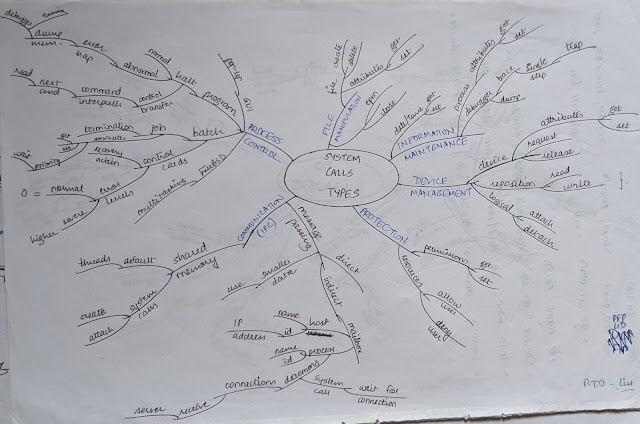 SYSTEM
CALLS
TYPES
PROCESS
CONTROL
program
halt
normal
abnormal
error
trap
dump
mem.
debugger
control
transfer
command
interpreter
next
cmd
read
pop-up
GUI
batch
job
termination
attributes
get
set
wait
priority
control
cards
recovery
action
error
levels
normal
= 0
severe
higher
multitasking
FILE
MANIPULATION
file
create
delete
attributes
get
set
open
close
INFORMATION
MAINTENANCE
date/time
get
set
process
attributes
get
set
debugger
trace
single
step
trap
dump
DEVICE
MANAGEMENT
device
attributes
get
set
request
release
reposition
read
write
}
logical
attach
detach
PROTECTION
permissions
get
set
resources
allow
user
deny
user
COMMUNICATION
(IPC)
message
passing
direct
smaller
data
use
indirect
mailbox
host
name
id
IP
address
process
name
id
daemons
connections
receive
server
system
call
wait for
connection
shared
memory
default
threads
system
calls
create
attach
P.T.O - List